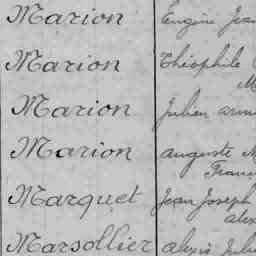 Marion Eugène Jean
Marion Théophile
Marion Julien
Marion Auguste M
Franç
Marquet Jean Joseph
alex
Marsollier alexis Juli